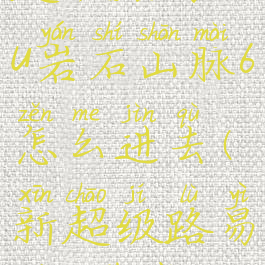 yán shí shān mài
U岩石山脉6
zěn me jìn qù
怎么进去(
xīn chāo jí lù yì
新超级路易